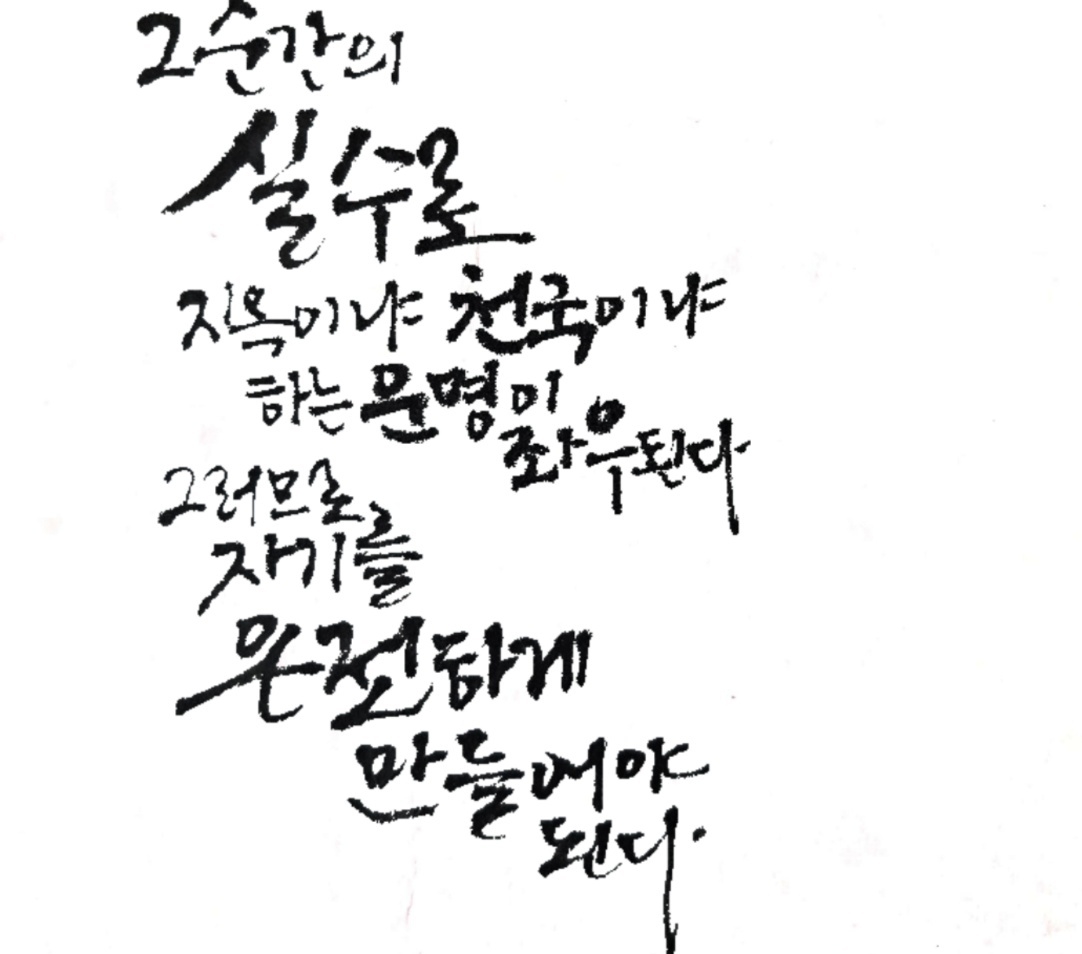 그순간의
실수로
지옥이냐 천국이냐
하는 운명이
좌우된다
그러므로
자기를
온전하게
만들어야
된다.